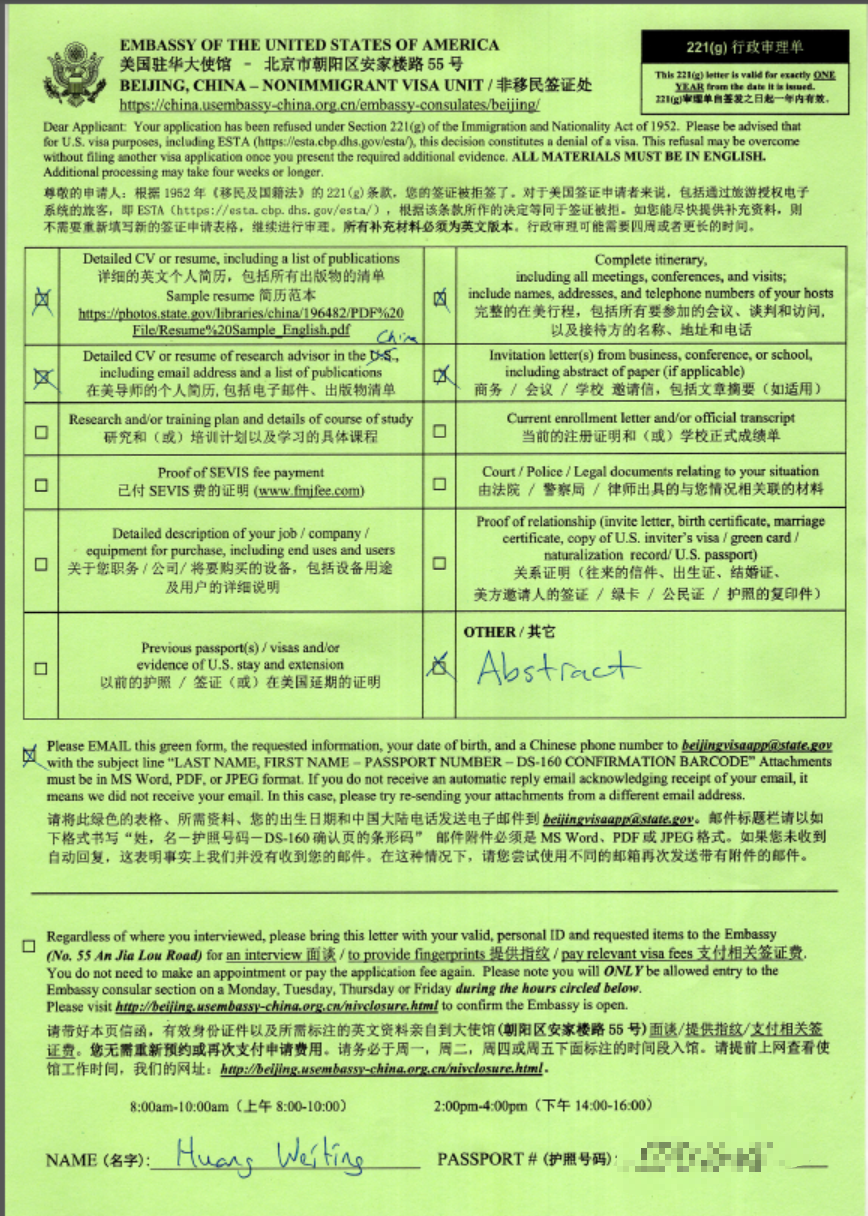 EMBASSY OF THE UNITED STATES OF AMERICA
美国驻华大使馆 - 北京市朝阳区安家楼路 55 号
BEIJING, CHINA – NONIMMIGRANT VISA UNIT / 非移民签证处
https://china.usembassy-china.org.cn/embassy-consulates/beijing/
221(g) 行政审理单
This 221(g) letter is valid for exactly ONE
YEAR from the date it is issued.
221(g)审理单自签发之日起一年内有效。
Dear Applicant: Your application has been refused under Section 221(g) of the Immigration and Nationality Act of 1952. Please be advised that
for U.S. visa purposes, including ESTA (https://esta.cbp.dhs.gov/esta/), this decision constitutes a denial of a visa. This refusal may be overcome
without filing another visa application once you present the required additional evidence. ALL MATERIALS MUST BE IN ENGLISH.
Additional processing may take four weeks or longer.
尊敬的申请人：根据 1952 年《移民及国籍法》的 221(g) 条款，您的签证被拒签了。对于美国签证申请者来说，包括通过旅游授权电子
系统的旅客，即 ESTA (https://esta.cbp.dhs.gov/esta/)，根据该条款所作的决定等同于签证被拒。如您能尽快提供补充资料，则
不需要重新填写新的签证申请表格，继续进行审理。所有补充材料必须为英文版本。行政审理可能需要四周或者更长的时间。
Detailed CV or resume, including a list of publications
详细的英文个人简历，包括所有出版物的清单
Sample resume 简历范本
https://photos.state.gov/libraries/china/196482/PDF%20
File/Resume%20Sample_English.pdf
Complete itinerary,
including all meetings, conferences, and visits;
include names, addresses, and telephone numbers of your hosts
完整的在美行程，包括所有要参加的会议、谈判和访问，
以及接待方的名称、地址和电话
China
Detailed CV or resume of research advisor in the U.S.,
including email address and a list of publications
在美导师的个人简历, 包括电子邮件、出版物清单
Invitation letter(s) from business, conference, or school,
including abstract of paper (if applicable)
商务 / 会议 / 学校 邀请信，包括文章摘要（如适用）
Research and/or training plan and details of course of study
研究和（或）培训计划以及学习的具体课程
Current enrollment letter and/or official transcript
当前的注册证明和（或）学校正式成绩单
Proof of SEVIS fee payment
已付 SEVIS 费的证明 (www.fmjfee.com)
Court / Police / Legal documents relating to your situation
由法院 / 警察局 / 律师出具的与您情况相关联的材料
Detailed description of your job / company /
equipment for purchase, including end uses and users
关于您职务 / 公司/ 将要购买的设备，包括设备用途
及用户的详细说明
Proof of relationship (invite letter, birth certificate, marriage
certificate, copy of U.S. inviter's visa / green card /
naturalization record/ U.S. passport)
关系证明（往来的信件、出生证、结婚证、
美方邀请人的签证 / 绿卡 / 公民证 / 护照的复印件）
Previous passport(s) / visas and/or
evidence of U.S. stay and extension
以前的护照 / 签证（或）在美国延期的证明
OTHER / 其它
Abstract
Please EMAIL this green form, the requested information, your date of birth, and a Chinese phone number to beijingvisaapp@state.gov
with the subject line “LAST NAME, FIRST NAME – PASSPORT NUMBER – DS-160 CONFIRMATION BARCODE” Attachments
must be in MS Word, PDF, or JPEG format. If you do not receive an automatic reply email acknowledging receipt of your email, it
means we did not receive your email. In this case, please try re-sending your attachments from a different email address.
请将此绿色的表格、所需资料、您的出生日期和中国大陆电话发送电子邮件到 beijingvisaapp@state.gov。邮件标题栏请以如
下格式书写“姓，名－护照号码－DS-160 确认页的条形码” 邮件附件必须是 MS Word、PDF 或 JPEG 格式。如果您未收到
自动回复，这表明事实上我们并没有收到您的邮件。在这种情况下，请您尝试使用不同的邮箱再次发送带有附件的邮件。
Regardless of where you interviewed, please bring this letter with your valid, personal ID and requested items to the Embassy
(No. 55 An Jia Lou Road) for an interview 面谈 / to provide fingerprints 提供指纹 / pay relevant visa fees 支付相关签证费.
You do not need to make an appointment or pay the application fee again. Please note you will ONLY be allowed entry to the
Embassy consular section on a Monday, Tuesday, Thursday or Friday during the hours circled below.
Please visit http://beijing.usembassy-china.org.cn/nivclosure.html to confirm the Embassy is open.
请带好本页信函，有效身份证件以及所需标注的英文资料亲自到大使馆(朝阳区安家楼路 55 号) 面谈/提供指纹/支付相关签
证费。您无需重新预约或再次支付申请费用。请务必于周一，周二，周四或周五下面标注的时间段入馆。请提前上网查看使
馆工作时间，我们的网址：http://beijing.usembassy-china.org.cn/nivclosure.html。
8:00am-10:00am（上午 8:00-10:00） 2:00pm-4:00pm（下午 14:00-16:00）
NAME (名字): Huang Weiting PASSPORT # (护照号码):